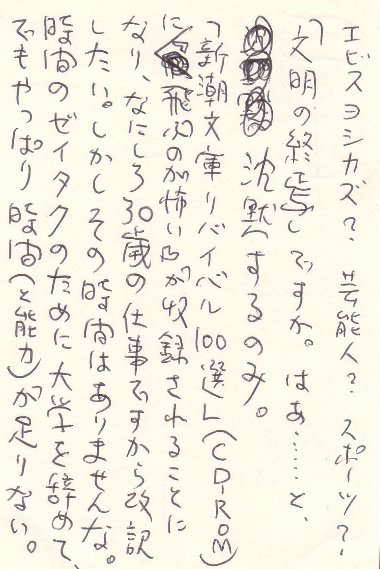 エビスヨシカズ? 芸能人? スポーツ?
「文明の終焉」ですか。はあ……と、
沈黙するのみ。
「新潮文庫リバイバル100選」(CD-ROM)
に『飛ぶのが怖い』が収録されることに
なり、なにしろ30歳の仕事ですから改訳
したい。しかしその時間はありませんな。
時間のゼイタクのために大学を辞めて、
でもやっぱり時間(と能力)が足りない。